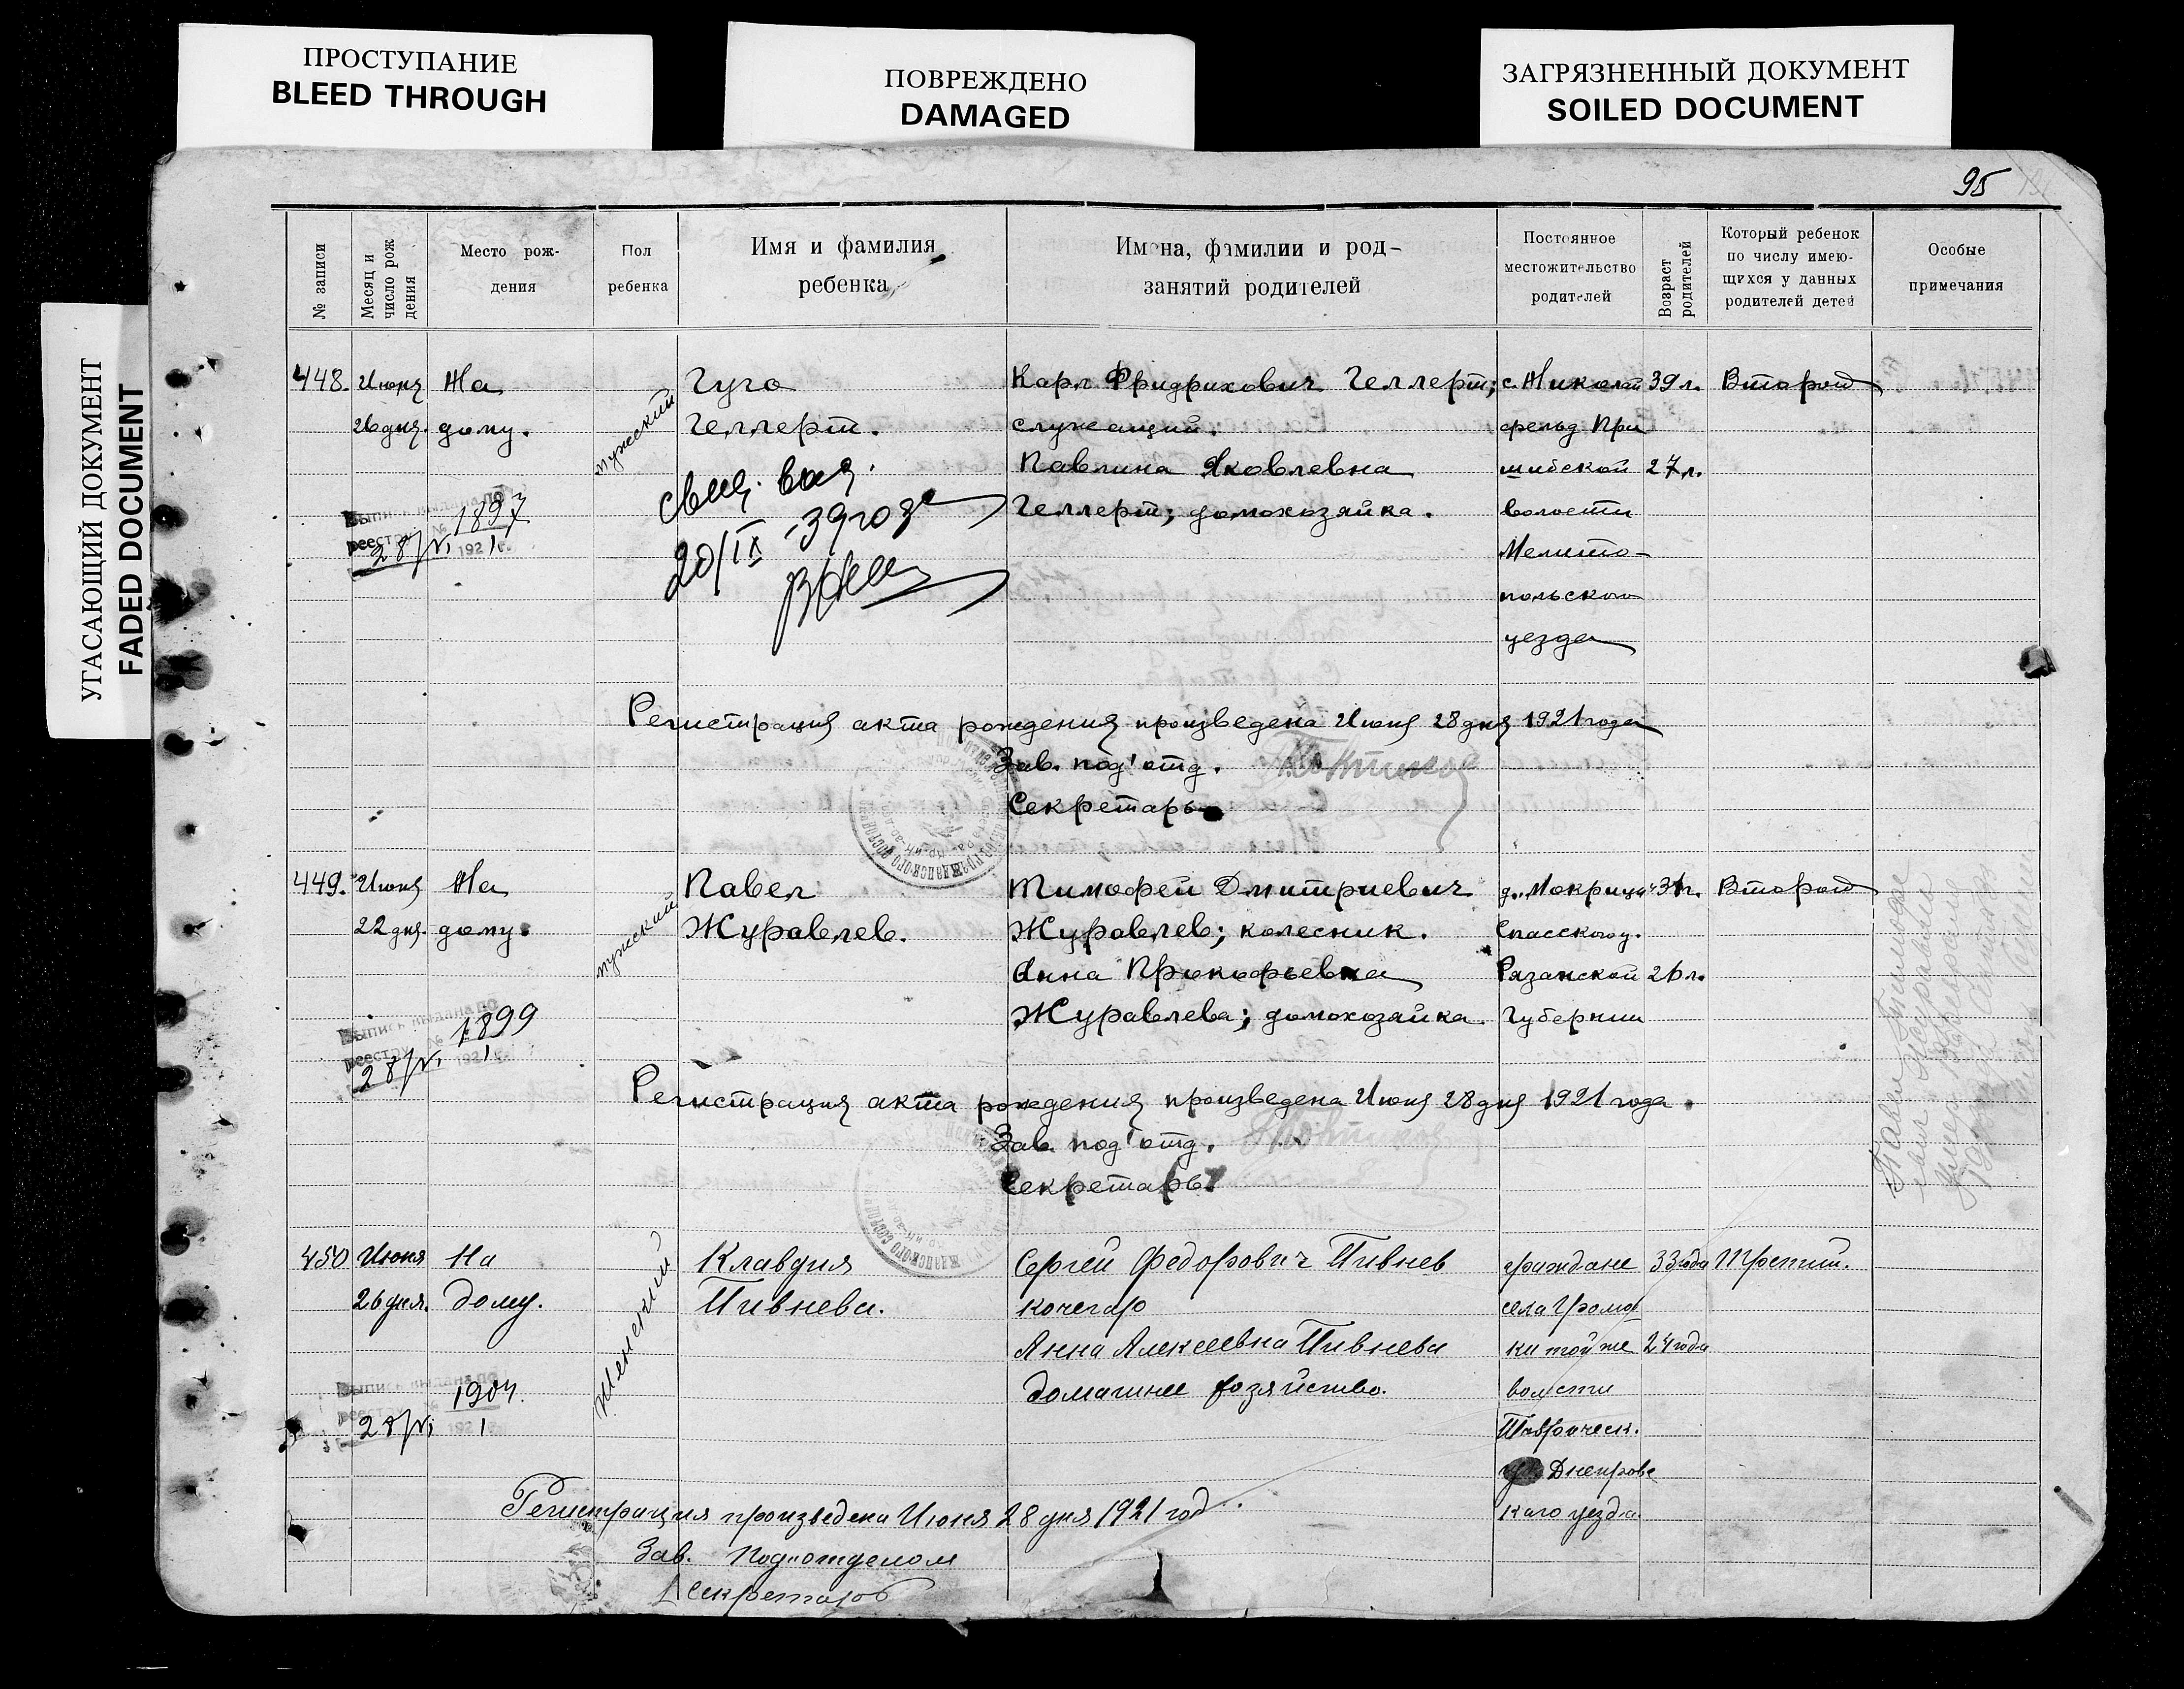 ПРОСТУПАНИЕ
BLEED THROUGH
ПОВРЕЖДЕНО
DAMAGED
ЗАГРЯЗНЕННЫЙ ДОКУМЕНТ
SOILED DOCUMENT
УГАСАЮЩИЙ ДОКУМЕНТ
FADED DOCUMENT
95
№ записи
Месяц и
число рож
дения
Место рож-
дения
Пол
ребенка
Имя и фамилия
ребенка
Имена, фамилии и род-
занятий родителей
Постоянное
местожительство
родителей
Возраст
родителей
Который ребенок
по числу имею-
щихся у данных
родителей детей
Особые
примечания
448. Июня На Гуго Карл Фридрихович Геллерт; с. Николай 39 л. Второй
мужский
26 дня. дому. Геллерт. служащий. фельд При
Павлина Яковлевна шибской 27 л.
Геллерт; домохозяйка. волости
Мелито-
польского
уезда
Выпись выдана по
реестру № 1897
28/VI 1921 г.
20/IX-39 года
Регистрация акта рождения произведена Июня 28 дня 1921 года
Зав. под'отд.
Секретарь
449. Июня На Павел Тимофей Дмитриевич 31 г. Второй
мужский
22 дня. дому. Журавлев. Журавлев; колесник. Спасского у.
Анна Прокофьевна Рязанской 26 л.
Журавлева; домохозяйка. Губернии
Выпись выдана по
реестру № 1899
28/VI 1921
Регистрация акта рождения произведена Июня 28 дня 1921 года.
Зав. под'отд.
Секретарь
450 Июня На Клавдия Сергей Федорович Пивнев граждане 33 года Третий.
женский
26 дня. дому. Пивнева. кочегар села Громов
Анна Алексеевна Пивнева ки той же 24 года
домашнее хозяйство. волости
Таврическ.
Днепровс
каго уезда
Выпись выдана по
реестру № 1904.
28/VI 1921
Регистрация произведена Июня 28 дня 1921 год
Зав. Подотделом
Секретарь